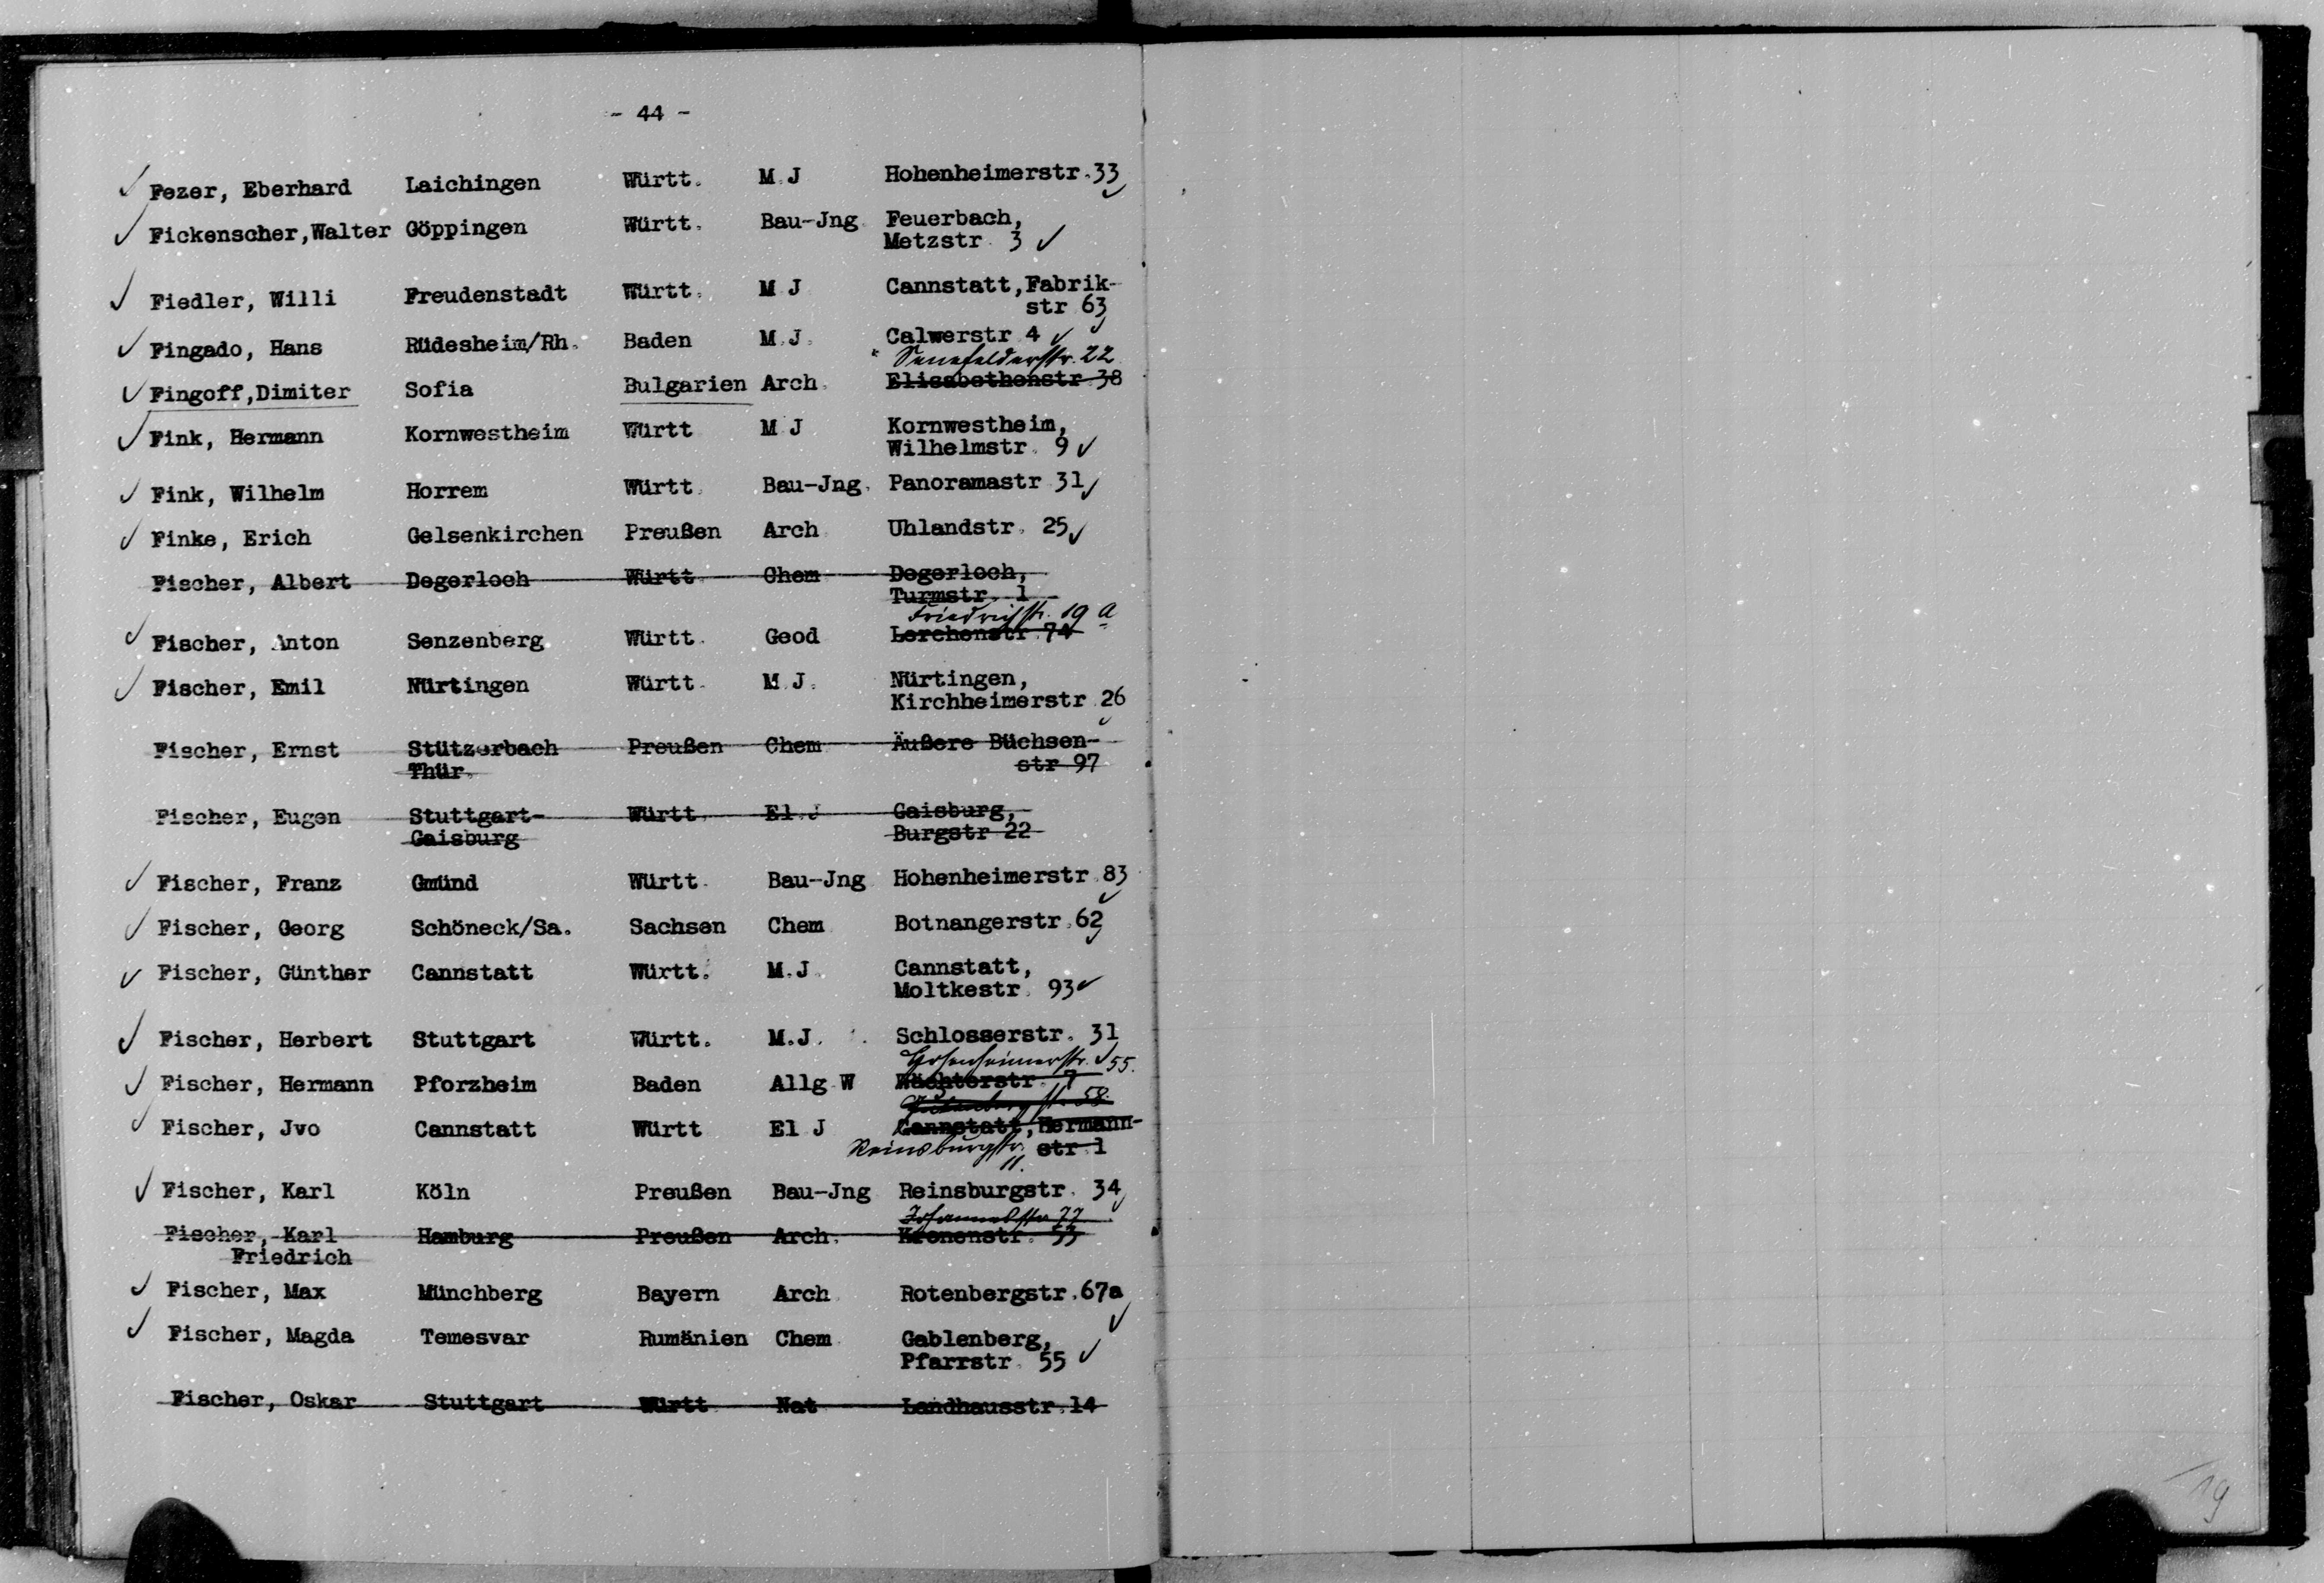 - 44 -
Fezer, Eberhard Laichingen Württ. M.J Hohenheimerstr.33
Fickenscher,Walter Göppingen Württ. Bau-Jng. Feuerbach,
Metzstr. 3
Fiedler, Willi Freudenstadt Württ. M J Cannstatt,Fabrik-
str 63
Fingado, Hans Rüdesheim/Rh. Baden M.J. Calwerstr 4
Senefelderstr. 22
Fingoff,Dimiter Sofia Bulgarien Arch. Elisabethenstr 38
Fink, Hermann Kornwestheim Württ M J Kornwestheim,
Wilhelmstr. 9
Fink, Wilhelm Horrem Württ. Bau-Jng. Panoramastr 31
Finke, Erich Gelsenkirchen Preußen Arch. Uhlandstr. 25
Fischer, Albert Degerloch Württ Chem Degerloch,
Turmstr. 1
Friedrichstr. 19 a
Fischer, Anton Senzenberg Württ. Geod Lerchenstr 74
Fischer, Emil Nürtingen Württ. M.J. Nürtingen,
Kirchheimerstr.26
Fischer, Ernst Stützerbach Preußen Chem Äußere Büchsen-
Thür. str 97
Fischer, Eugen Stuttgart- Württ. El.J Gaisburg,
Gaisburg Burgstr 22
Fischer, Franz Gmünd Württ. Bau-Jng Hohenheimerstr.83
Fischer, Georg Schöneck/Sa. Sachsen Chem. Botnangerstr.62
Fischer, Günther Cannstatt Württ. M.J. Cannstatt,
Moltkestr. 93
Fischer, Herbert Stuttgart Württ. M.J. Schlosserstr. 31
Hohenheimerstr. 55.
Fischer, Hermann Pforzheim Baden Allg W Wächterstr. 7
str 58.
Fischer, Jvo Cannstatt Württ El J Cannstatt,Hermann-
Reinsburgstr. str 1
11.
Fischer, Karl Köln Preußen Bau-Jng Reinsburgstr. 34
Johannesstr 77
Fischer, Karl Hamburg Preußen Arch. Kronenstr. 53
Friedrich
Fischer, Max Münchberg Bayern Arch Rotenbergstr.67a
Fischer, Magda Temesvar Rumänien Chem. Gablenberg,
Pfarrstr. 55
Fischer, Oskar Stuttgart Württ Nat Landhausstr.14
19